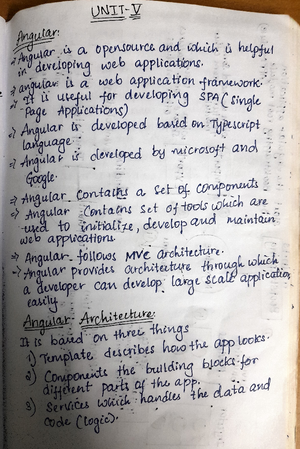 UNIT-V
Angular:
⇒ Angular is a opensource and which is helpful
in developing web applications.
⇒ angular is a web application framework.
⇒ It is useful for developing SPA (single
Page Applications)
⇒ Angular is developed based on Typescript
language.
⇒ Angular is developed by microsoft and
Google.
⇒ Angular Contains a set of components
⇒ Angular Contains set of tools which are
used to initialize, develop and maintain
web applications.
⇒ Angular follows MVC architecture.
⇒ Angular provides architecture through which
a developer can develop large scale application
easily.
Angular Architecture:
It is based on three things
1) Template describes how the app looks.
2) Components the building blocks for
different parts of the app.
3) Services which handles the data and
code (logic).